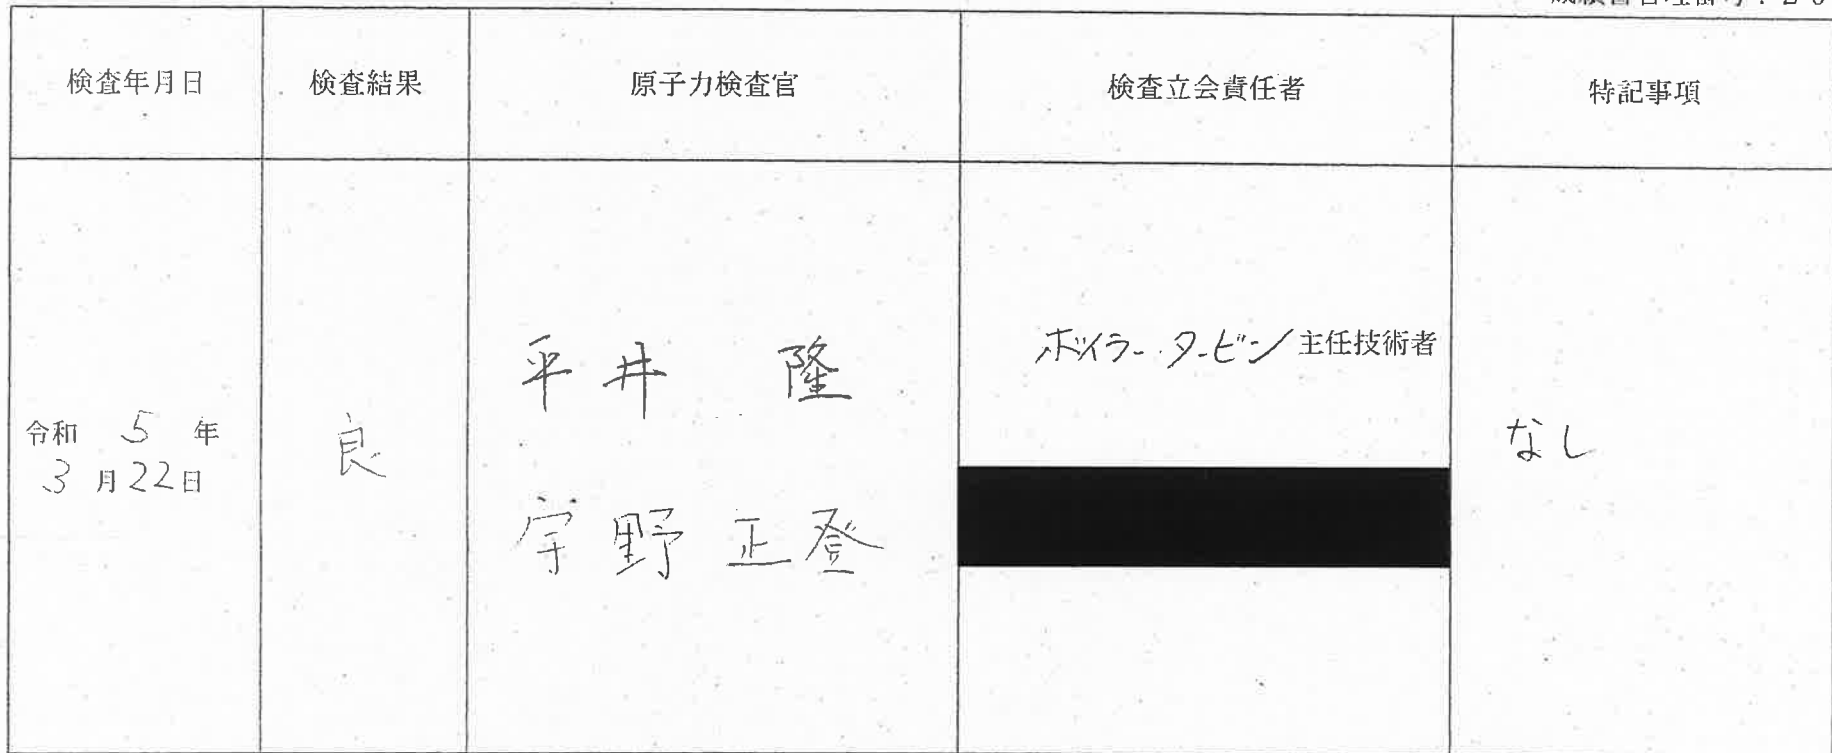 検査年月日
検査結果
原子力検査官
検査立会責任者
特記事項
令和 5 年
3 月 22 日
良
平井 隆
宇野 正登
ボイラー・タービン主任技術者
なし